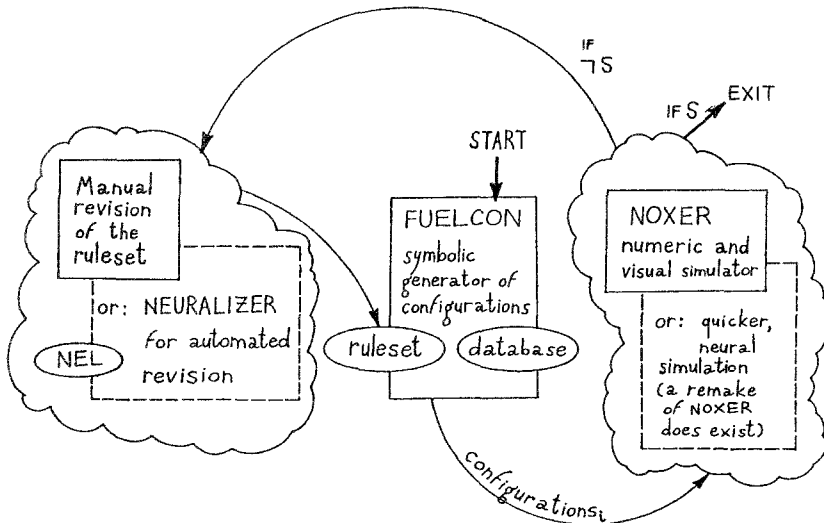 IF
¬S
IF S
EXIT
START
Manual
revision
of the
ruleset
or: NEURALIZER
for automated
revision
NEL
FUELCON
symbolic
generator of
configurations
ruleset
database
NOXER
numeric and
visual simulator
or: quicker,
neural
simulation
(a remake
of NOXER
does exist)
configurations i